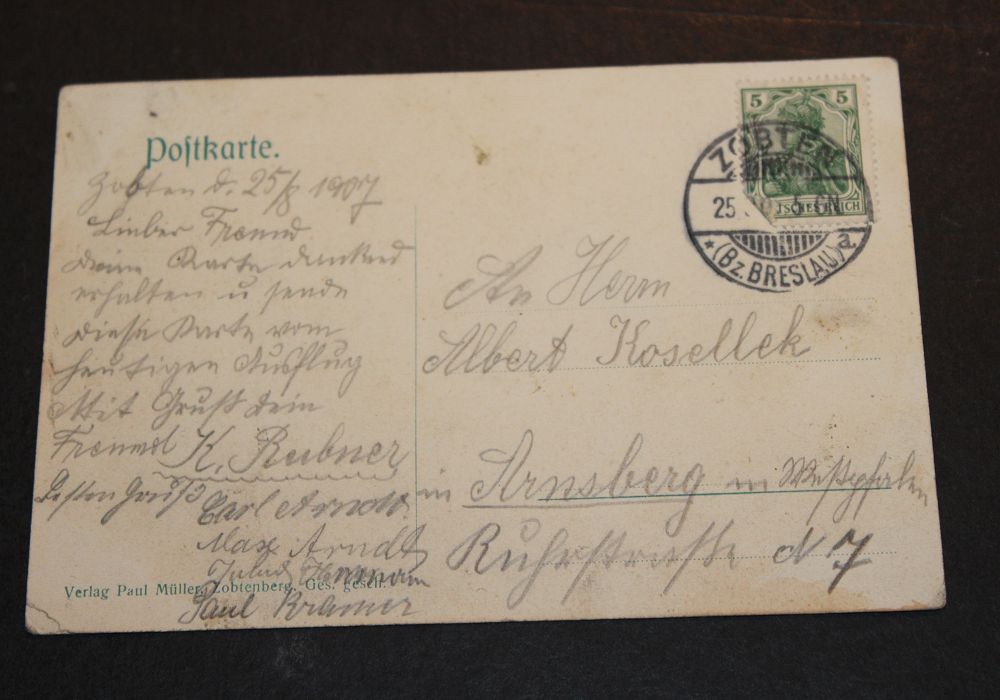 Postkarte.
Zobten d. 25/8 1907
Lieber Freund
Deine Karte dankend
erhalten u sende
diese Karte vom
heutigen Ausflug
Mit Gruß Dein
Freund K. Rubner
Besten Gruß
Carl Arndt
Max Arndt
Paul Kramer
Verlag Paul Müller, Zobtenberg. Ges. gesch.
5 5
DEUTSCHES REICH
ZOBTEN
25. 5-6N
* (Bz. BRESLAU) a.
An Herrn
Albert Kosellek
in Arnsberg in Westphalen
Ruhrstraße N 7